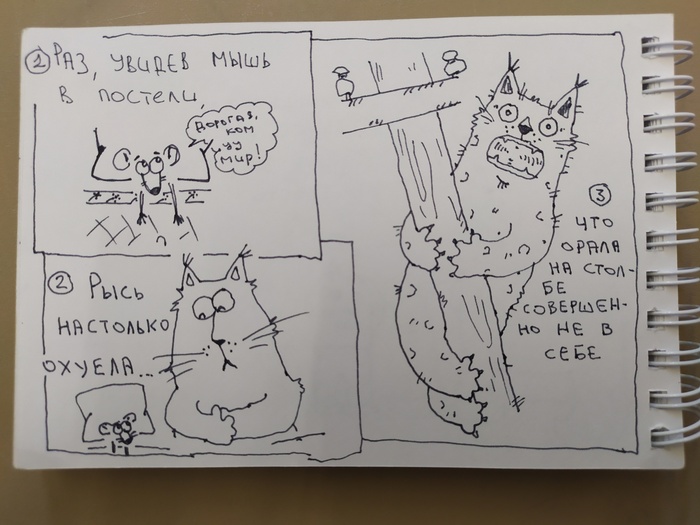 1 РАЗ, УВИДЕВ МЫШЬ
В ПОСТЕЛИ,
ДОРОГАЯ,
КОМ
УУ
МИР!
2 РЫСЬ
НАСТОЛЬКО
ОХУЕЛА...
3
ЧТО
ОРАЛА
НА СТОЛ-
БЕ
СОВЕРШЕН-
НО НЕ В
СЕБЕ